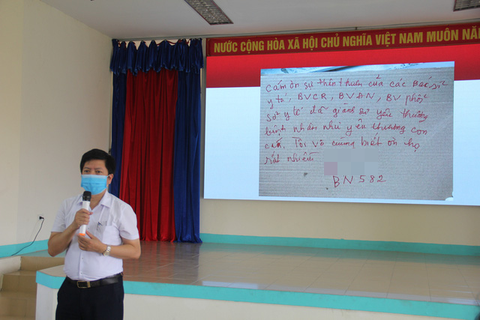 NƯỚC CỘNG HÒA XÃ HỘI CHỦ NGHĨA VIỆT NAM MUÔN NĂM
Cảm ơn sự thân thiện của các Bác sĩ
y tá, BVCR, BVĐN, BV phổi
sơ y tế đã giành sự yêu thương
bệnh nhân như yêu thương con
cái. Tôi vô cùng biết ơn họ
rất nhiều
BN 582